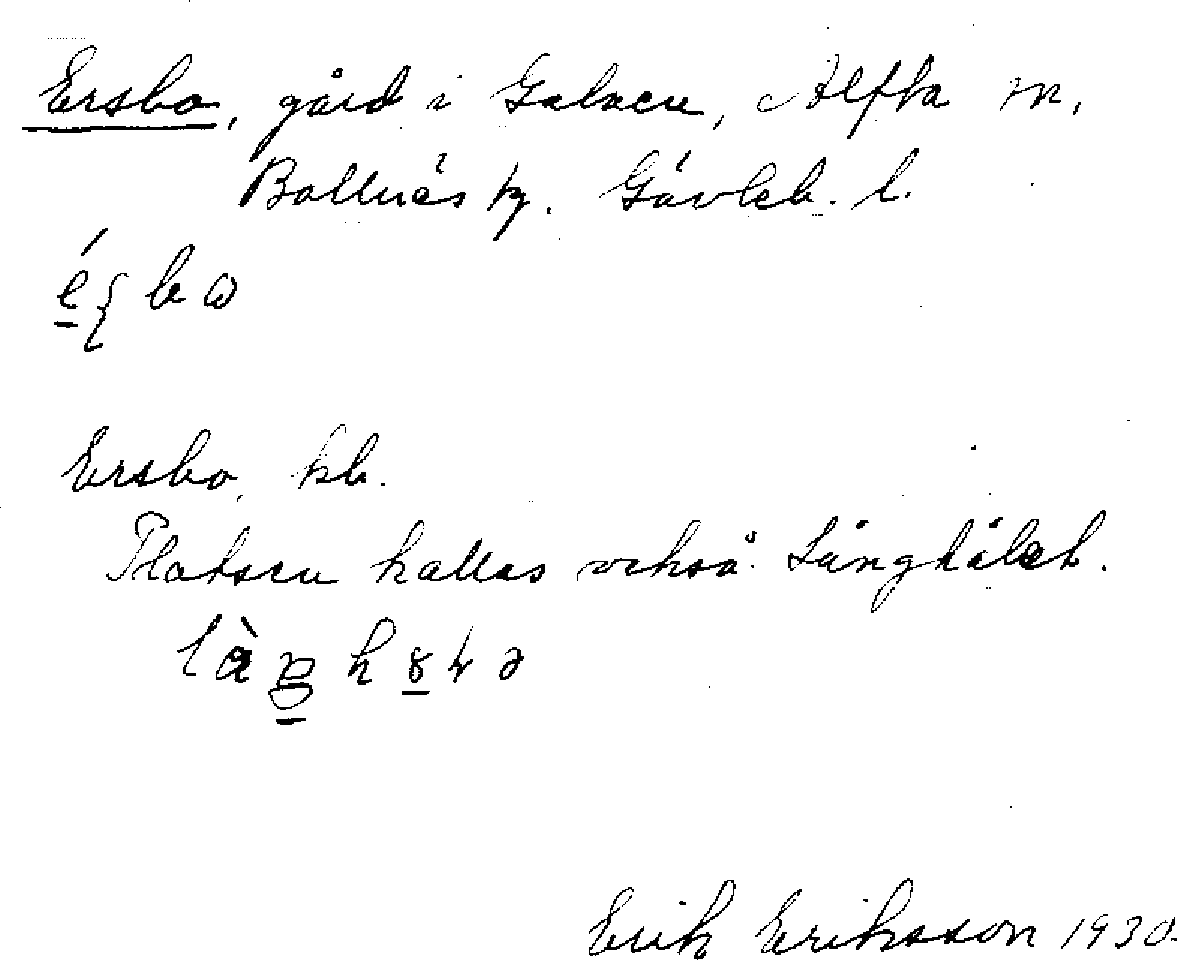 Ersbo, gård i Galven, Alfta sn,
Bollnäs kg. Gävleb. l.
Ersbo, kb.
Platsen kallas också Långhålet.
Erik Eriksson 1930.